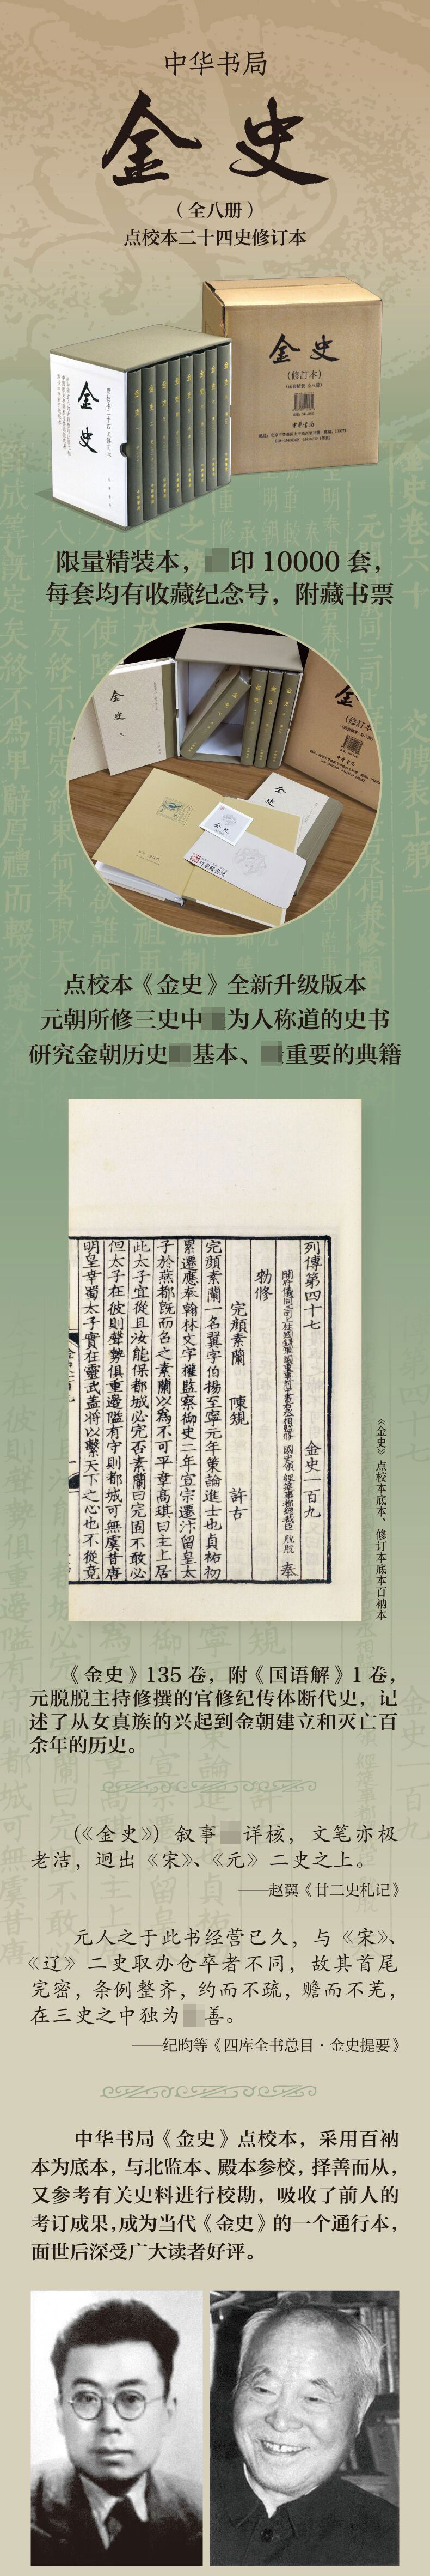 中华书局
金史
（全八册）
点校本二十四史修订本
金史
點校本二十四史修訂本
中華書局
金史
（修訂本）
中華書局
限量精装本，印 10000 套，
每套均有收藏纪念号，附藏书票
金史
金史
点校本《金史》全新升级版本
元朝所修三史中为人称道的史书
研究金朝历史基本、重要的典籍
列傳第四十七　金史一百九
勑修
完顔素蘭　陳規　許古
完顔素蘭一名翼字伯揚至寧元年策論進士也貞祐初
累遷應奉翰林文字權監察御史二年宣宗遷汴留皇太
子於燕都既而召之素蘭以為不可平章高琪曰主上居
此太子宜從且汝能保都城必完否素蘭曰完固不敢必
但太子在彼則聲勢俱重邊隘有守則都城可無虞昔唐
明皇幸蜀太子實在靈武盖將以繫天下之心也不從竟
《金史》点校本底本、修订本底本百衲本
《金史》135 卷，附《国语解》1 卷，
元脱脱主持修撰的官修纪传体断代史，记
述了从女真族的兴起到金朝建立和灭亡百
余年的历史。
（《金史》）叙事详核，文笔亦极
老洁，迥出《宋》、《元》二史之上。
——赵翼《廿二史札记》
元人之于此书经营已久，与《宋》、
《辽》二史取办仓卒者不同，故其首尾
完密，条例整齐，约而不疏，赡而不芜，
在三史之中独为善。
——纪昀等《四库全书总目·金史提要》
中华书局《金史》点校本，采用百衲
本为底本，与北监本、殿本参校，择善而从，
又参考有关史料进行校勘，吸收了前人的
考订成果，成为当代《金史》的一个通行本，
面世后深受广大读者好评。